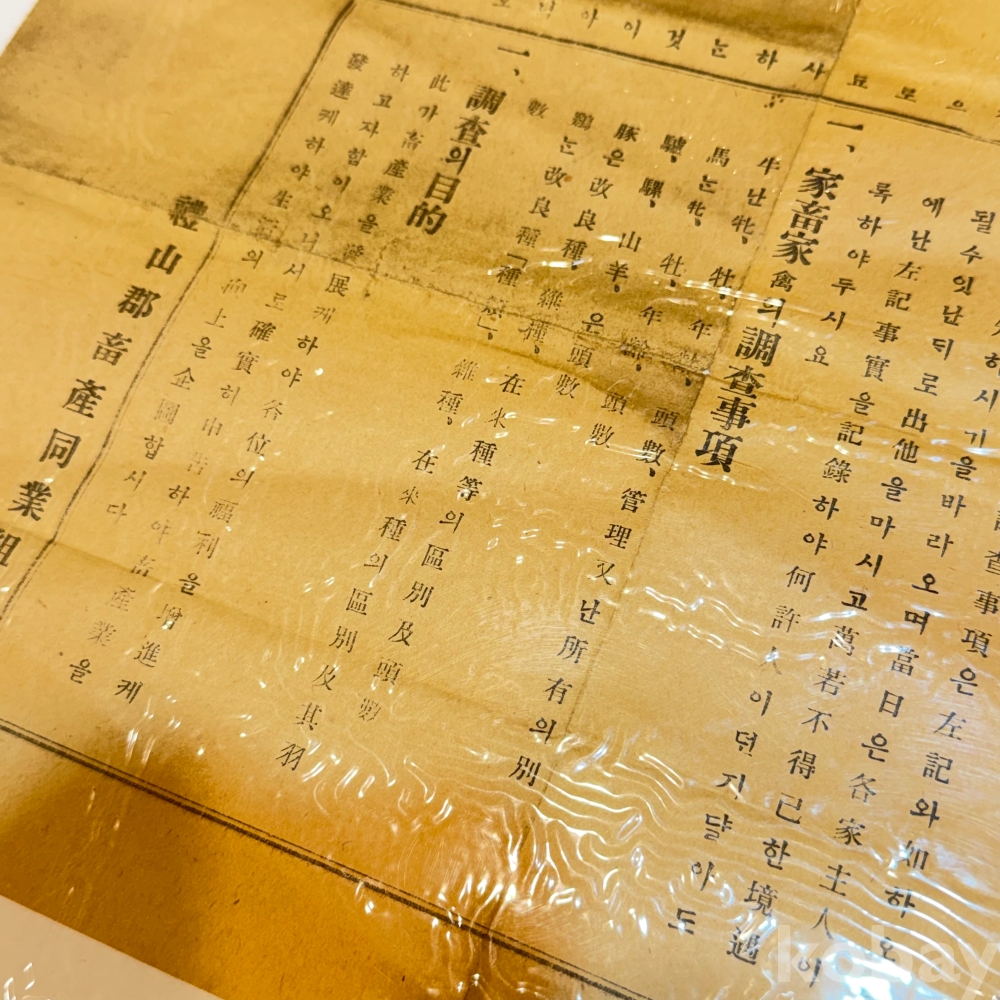 하사됴하눈것이아
査事項은左記와如하오
하시기을바라오며當日은各家主人이
될수잇난듸로出他을마시고萬若不得已한境遇
에난左記事實을記錄하야何許人이던지댤아도
록하야두시요
一、家畜家禽의調査事項
牛난牝、牡、年齡、頭數、管理又난所有의別
馬눈牝、牡、年齡、頭數
驢、騾、山羊、은頭數
豚은改良種、雜種、在來種等의區別及頭數
鷄눈改良種「種類」、雜種、在來種의區別及其羽
數
一、調査의目的
此가畜產業을發展케하야各位의福利을增進케
하고자함이오니서로確實히申告하야畜產業을
發達케하야生活의向上을企圖합시다
禮山郡畜產同業組
kobay